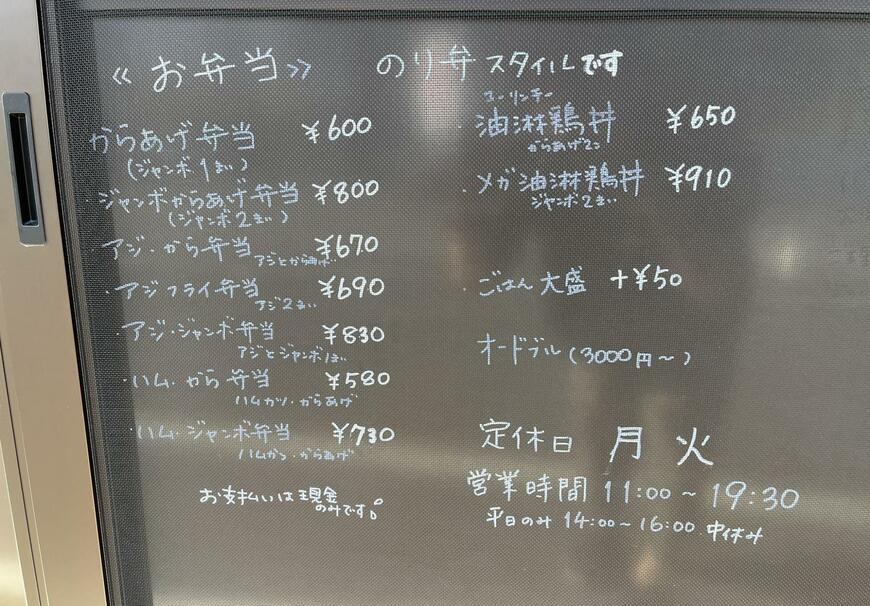 ≪お弁当≫ のり弁スタイルです
からあげ弁当 ¥600
(ジャンボ1まい)
・ジャンボからあげ弁当 ¥800
(ジャンボ2まい)
・アジ・から弁当 ¥670
アジとからあげ
・アジフライ弁当 ¥690
アジ2まい
・アジ・ジャンボ弁当 ¥830
アジとジャンボ1まい
・ハム・から弁当 ¥580
ハムカツ・からあげ
・ハム・ジャンボ弁当 ¥730
ハムカツ・からあげ
お支払いは現金
のみです。
ユーリンチー
・油淋鶏丼 ¥650
からあげ2コ
・メガ油淋鶏丼 ¥910
ジャンボ2まい
・ごはん大盛 +¥50
オードブル(3000円〜)
定休日 月 火
営業時間 11:00〜19:30
平日のみ 14:00〜16:00 中休み